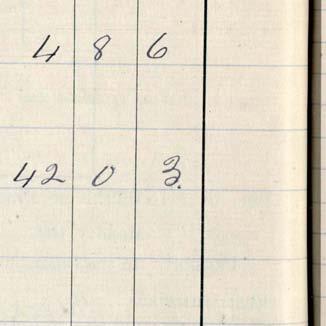 4 8 6
42 0 3.